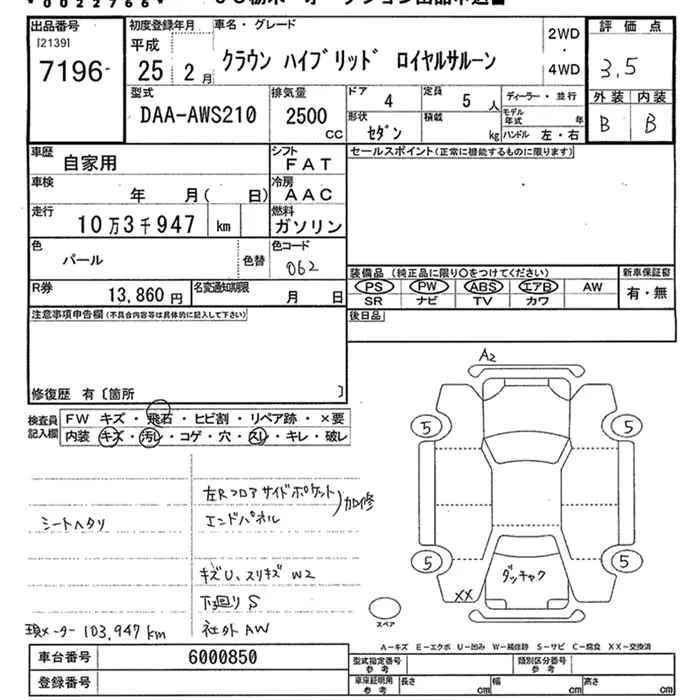 * 0022766 *
出品番号 初度登録年月 車名・グレード 2WD・4WD 評価点
[2139] 7196- 平成25 2月 クラウン ハイブリッド ロイヤルサルーン 3.5
型式 排気量 ドア 4 定員 5人 ディーラー・並行 外装 内装
DAA-AWS210 2500 CC 形状 セダン 積載 kg モデル年式 年 ハンドル 左・右 B B
車歴 自家用 シフト FAT セールスポイント(正常に機能するものに限ります)
車検 年 月( 日) 冷房 AAC
走行 10万3千947 km 燃料 ガソリン
色 パール 色替 色コード 062
装備品 (純正品に限り○をつけてください) 新車保証書
R券 13,860円 名変通知期限 月 日 PS PW ABS エアB AW 有・無
SR ナビ TV カワ
注意事項申告欄(不具合内容等は具体的に記入して下さい) 後日品
修復歴 有〔箇所 〕
検査員記入欄 FW キズ・飛石・ヒビ割・リペア跡・×要
内装・キズ・汚レ・コゲ・穴・スレ・キレ・破レ
A2
5 5
シートヘタリ 左Rフロアサイドポケット
エンドパネル )加修
キズU、スリキズ W2
下回り S
現メーター 103,947km 社外AW
5 5
ダッチャク
XX
スペア
A-キズ E-エクボ U-凹み W-補修跡 S-サビ C-腐食 XX-交換済
車台番号 6000850 型式指定番号 参考 類別区分番号 参考
登録番号 車庫証明用 参考 長さ cm 幅 cm 高さ cm